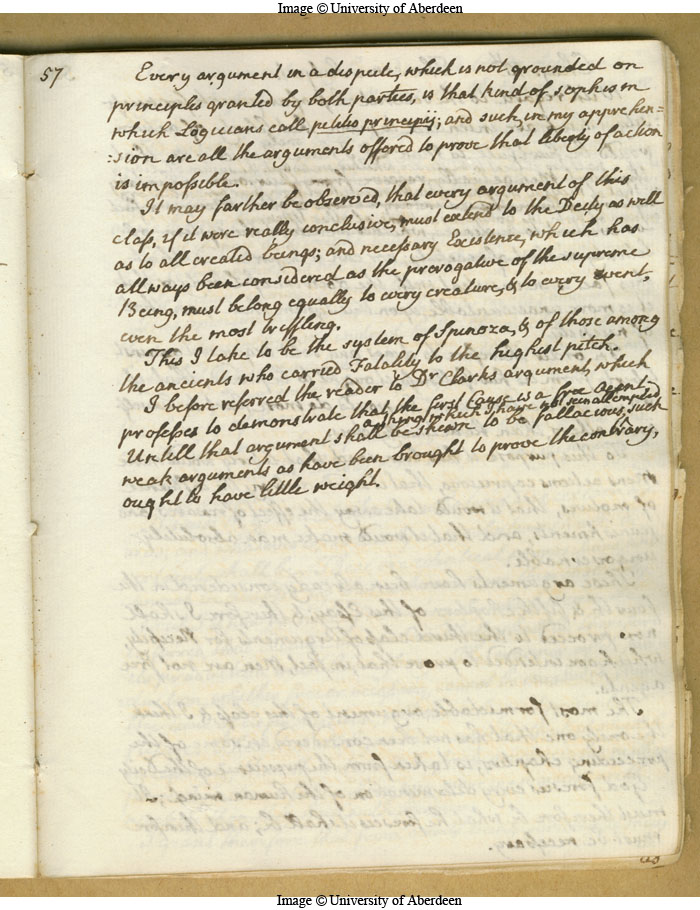 Image © University of Aberdeen
57
Every argument in a dispute, which is not grounded on
principles granted by both parties, is that kind of sophism
which Logicians call petitio principij; and such, in my apprehen=
=sion are all the arguments offered to prove that liberty of action
is impossible.
It may farther be observed, that every argument of this
class, if it were really conclusive, must extend to the Deity as well
as to all created beings; and necessary Existence, which has
allways been considered as the prerogative of the supreme
Being, must belong equally to every creature, & to every event,
even the most trifling.
This I take to be the system of Spinoza, & of those among
the ancients who carried Fatality to the highest pitch.
I before referred the reader to Dr Clarks argument, which
professes to demonstrate that the first Cause is a free agent.
Untill that argument shall be shewn to be fallacious, a thing which I have not seen attempted such
weak arguments as have been brought to prove the contrary,
ought to have little weight.
Image © University of Aberdeen